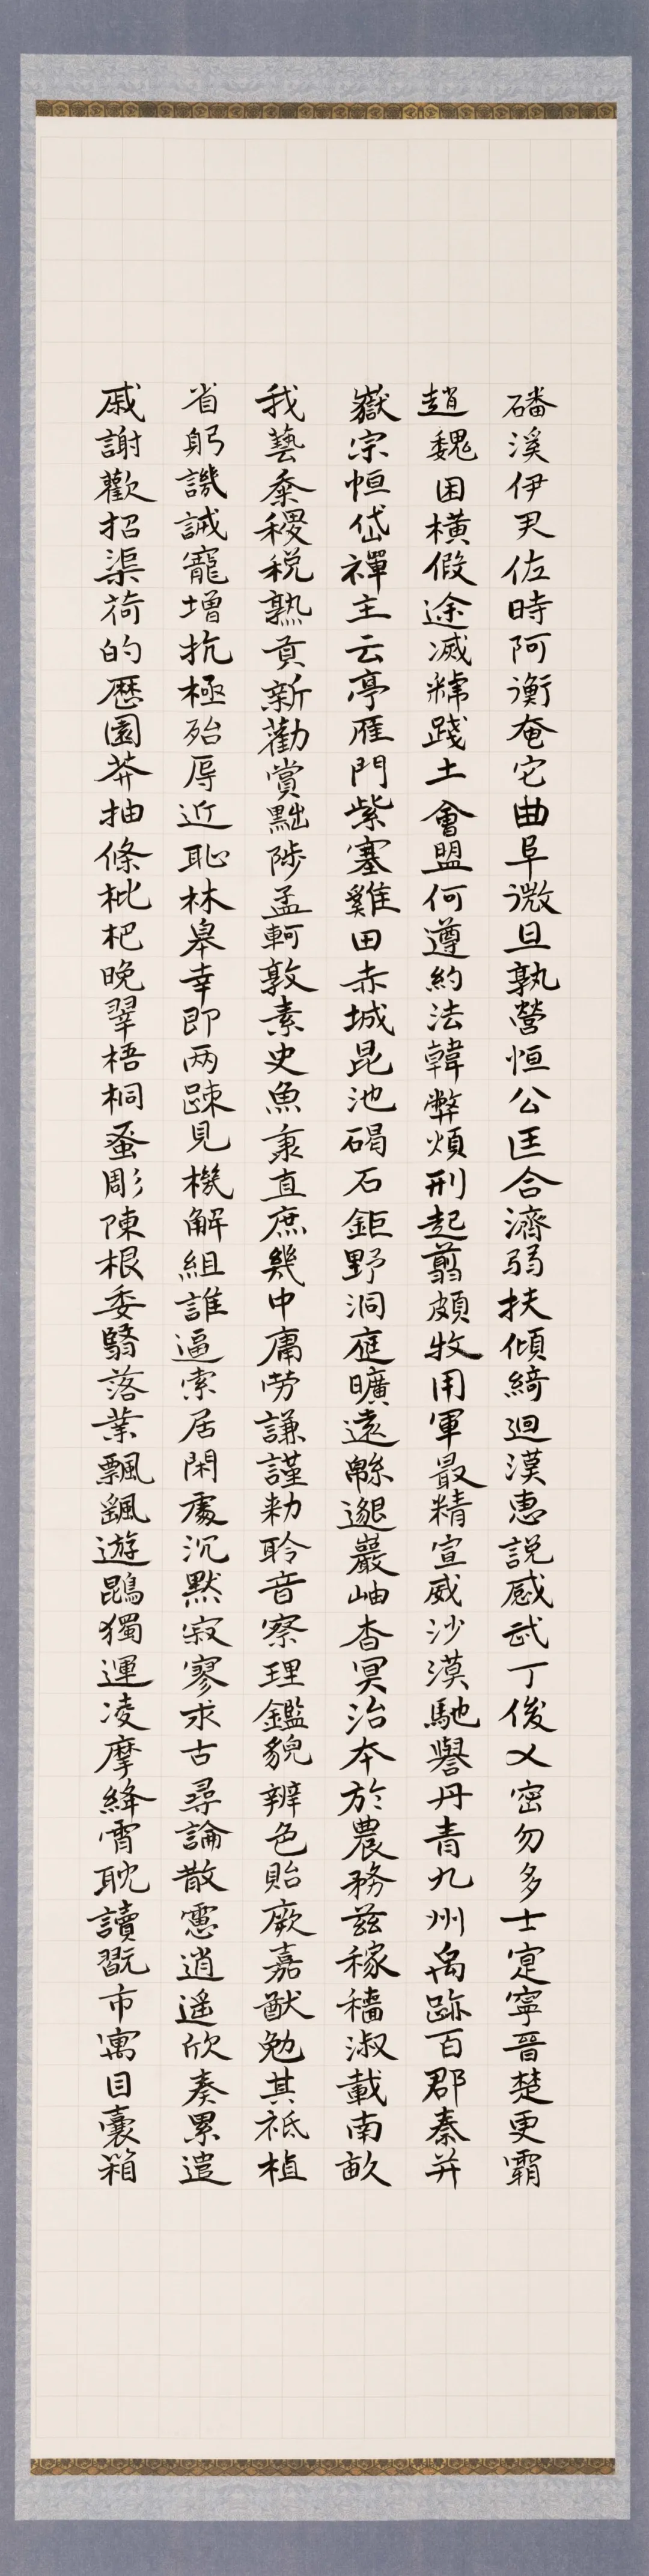 磻溪伊尹佐時阿衡奄宅曲阜微旦孰營恒公匡合濟弱扶傾綺迴漢惠説感武丁俊乂密勿多士寔寧晉楚更霸
趙魏困橫假途滅虢踐土會盟何遵約法韓弊煩刑起翦頗牧用軍最精宣威沙漠馳譽丹青九州禹跡百郡秦并
嶽宗恒岱禪主云亭雁門紫塞雞田赤城昆池碣石鉅野洞庭曠遠緜邈巖岫杳冥治本於農務茲稼穡淑載南畝
我藝黍稷税熟貢新勸賞黜陟孟軻敦素史魚秉直庶幾中庸勞謙謹勑聆音察理鑑貌辨色貽厥嘉猷勉其祗植
省躬譏誡寵增抗極殆辱近恥林皋幸即兩疎見機解組誰逼索居閑處沉默寂寥求古尋論散慮逍遥欣奏累遣
慼謝歡招渠荷的歷園莽抽條枇杷晚翠梧桐蚤彫陳根委翳落葉飄颻遊鵾獨運凌摩絳霄耽讀翫市寓目囊箱